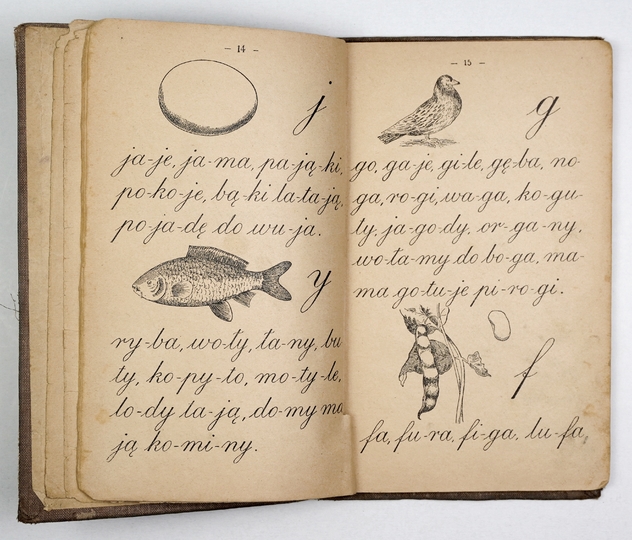 – 14 –
j
ja-je, ja-ma, pa-ją-ki,
po-ko-je, bą-ki la-ta-ją,
po-ja-dę do wu-ja.
y
ry-ba, wo-ły, ła-ny, bu
ty, ko-py-to, mo-ty-le,
lo-dy ła-ją, do-my ma
ją ko-mi-ny.
– 15 –
g
go, ga-je, gi-le, gę-ba, no-
ga, ro-gi, wa-ga, ko-gu-
ty, ja-go-dy, or-ga-ny,
wo-ła-my do bo-ga, ma-
ma go-tu-je pi-ro-gi.
f
fa, fu-ra, fi-ga, lu-fa,